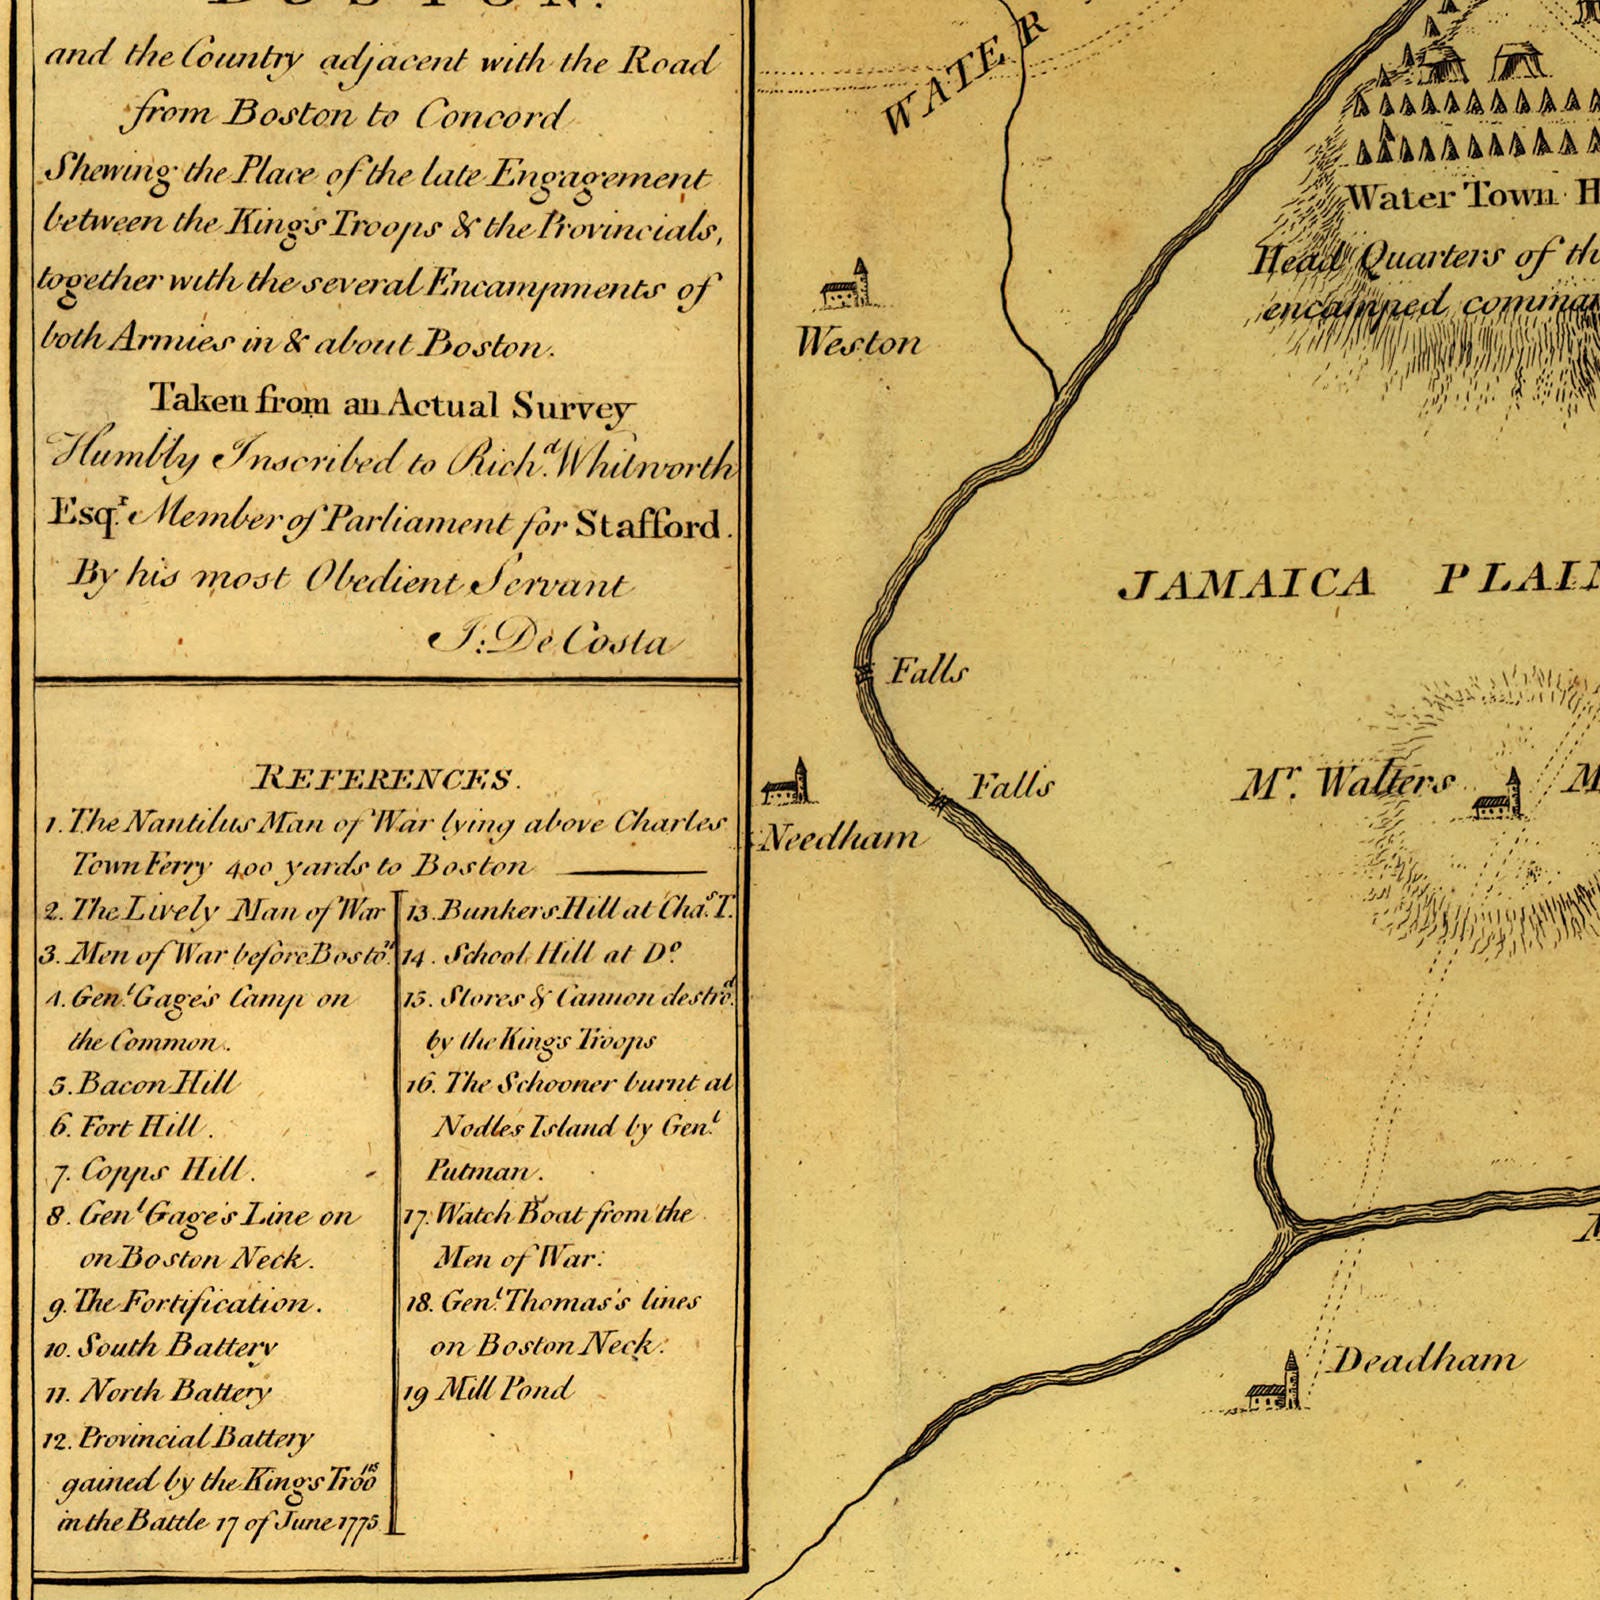 BOSTON.
and the Country adjacent with the Road
from Boston to Concord
Shewing the Place of the late Engagement
between the Kings Troops & the Provincials,
together with the several Encampments of
both Armies in & about Boston.
Taken from an Actual Survey
Humbly Inscribed to Richd. Whitworth
Esqr. Member of Parliament for Stafford.
By his most Obedient Servant
J: De Costa
REFERENCES.
1. The Nantilus Man of War lying above Charles
Town Ferry 400 yards to Boston
2. The Lively Man of War
3. Men of War before Boston
4. Genl. Gage's Camp on
the Common.
5. Bacon Hill
6. Fort Hill.
7. Copps Hill.
8. Genl Gage's Line on
on Boston Neck.
9. The Fortification.
10. South Battery
11. North Battery
12. Provincial Battery
gained by the Kings Troops
in the Battle 17 of June 1775
13. Bunkers Hill at Chas. T.
14. School Hill at Do.
15. Stores & Cannon destrod.
by the Kings Troops
16. The Schooner burnt at
Nodles Island by Genl.
Putman.
17. Watch Boat from the
Men of War:
18. Genl. Thomas's lines
on Boston Neck.
19 Mill Pond
WATER
Water Town H
Head Quarters of th
encamped comman
Weston
JAMAICA PLAIN
Falls
Falls
Mr. Walters
M
Needham
Deadham